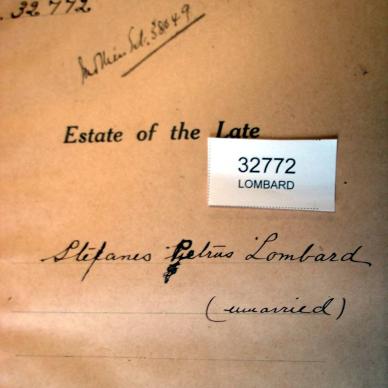 32772
Mother's Est. 38049
Estate of the Late
32772
LOMBARD
Stefanes Petrus Lombard
(unmarried)